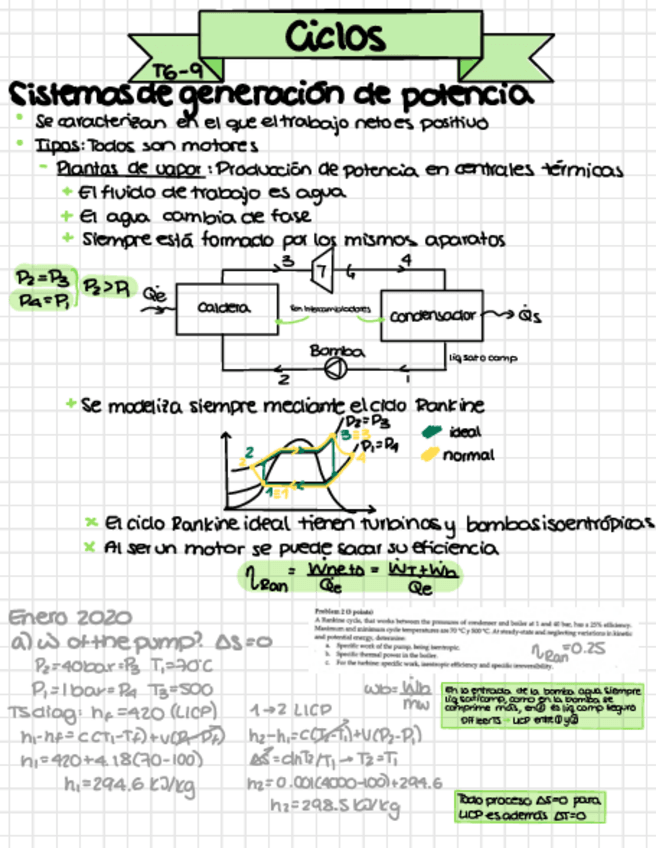 Ciclos
T6-9
Sistemas de generación de potencia
• Se caracterizan en el que el trabajo neto es positivo
• Tipos: Todos son motores
- Plantas de vapor: Producción de potencia en centrales térmicas
+ El fluido de trabajo es agua
+ El agua cambia de fase
+ Siempre está formado por los mismos aparatos
P2=P3
P4=P1
P2>P1
Qe
Caldera
3
T
4
Son intercambiadores
Condensador
Qs
Bomba
liq sat o comp
2
1
+ Se modeliza siempre mediante el ciclo Rankine
P2=P3
P1=P4
ideal
normal
× El ciclo Rankine ideal tienen turbinas y bombas isoentrópicas
× Al ser un motor se puede sacar su eficiencia
ηRan = Wneto/Qe = WT+Wb/Qe
Enero 2020
Problem 2 (3 points)
A Rankine cycle, that works between the pressures of condenser and boiler at 1 and 40 bar, has a 25% efficiency.
Maximum and minimum cycle temperatures are 70 ºC y 500 ºC. At steady-state and neglecting variations in kinetic
and potential energy, determine:
a. Specific work of the pump, being isentropic.
b. Specific thermal power in the boiler.
c. For the turbine: specific work, isentropic efficiency and specific irreversibility.
ηRan=0.25
a) ω of the pump? ΔS=0
P2=40bar=P3 T1=70ºC
P1=1bar=P4 T3=500
ωb=Wb/mw
En la entrada de la bomba agua siempre
liq sat/comp, como en la bomba se
comprime más, en ② es liq comp seguro
TS diag: hf=420 (LICP)
h1-hf=c(T1-Tf)+v(P1-Pf)
h1=420+4.18(70-100)
h1=294.6 kJ/kg
1→2 LICP
h2-h1=c(T2-T1)+v(P2-P1)
ΔS=c ln T2/T1 → T2=T1
h2=0.001(4000-100)+294.6
h2=298.5 kJ/kg
Todo proceso ΔS=0 para
LICP es además ΔT=0